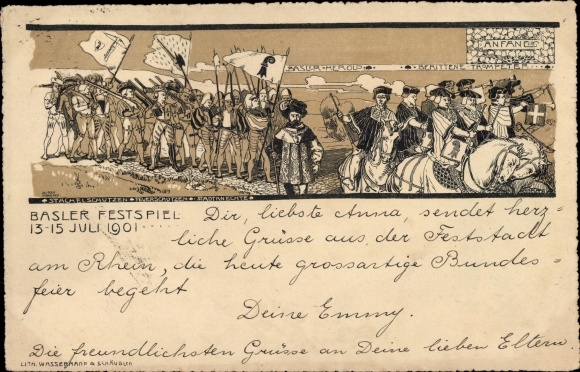 ANFANG
BASLER HEROLD BERITTENE TROMPETER
STACHELSCHÜTZEN FEUERSCHÜTZEN STADTKNECHTE
BASLER FESTSPIEL
13-15 JULI 1901
Dir, liebste Anna, sendet herz=
liche Grüsse aus der Feststadt
am Rhein, die heute grossartige Bundes=
feier begeht
Deine Emmy.
Die freundlichsten Grüsse an Deine lieben Eltern.
LITH. WASSERMANN & SCHÄUBLIN